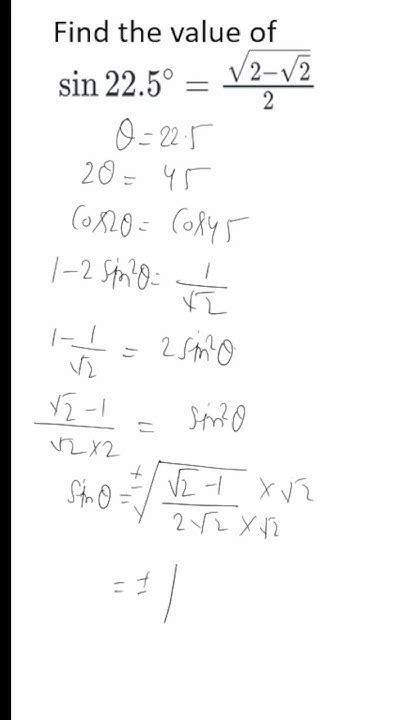 Find the value of
sin 22.5° = √(2−√2)/2
θ = 22.5
2θ = 45
Cos2θ = Cos45
1−2 sin²θ = 1/√2
1−1/√2 = 2 sin²θ
(√2 −1)/(√2×2) = sin²θ
sinθ = ±√((√2 −1)/(2√2) ×√2/×√2)
= ±